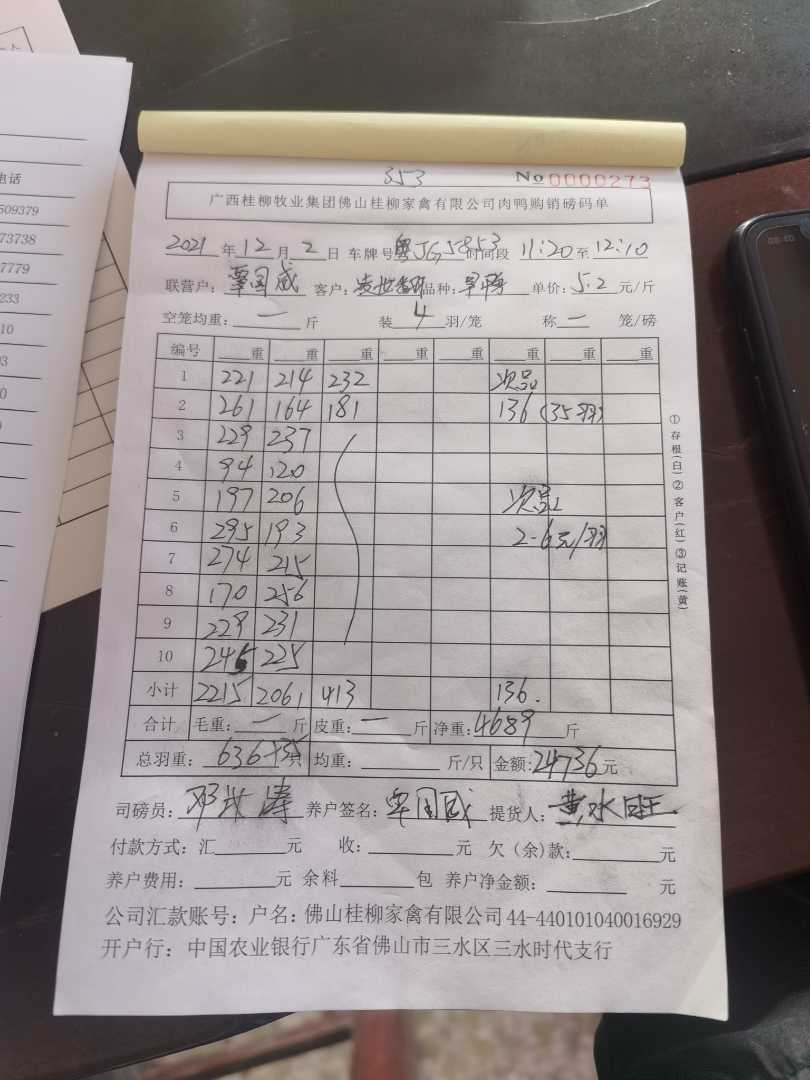 电话
509379
73738
7779
233
10
93
0
9
08:40
353
No 0000273
广西桂柳牧业集团佛山桂柳家禽有限公司肉鸭购销磅码单
2021 年 12 月 2 日 车牌号 粤JG5853 时间段 11:20 至 12:10
联营户: 覃国威 客户: 品种: 单价: 5.2 元/斤
空笼均重: 一 斤 装 4 羽/笼 称 一 笼/磅
编号 重 重 重 重 重 重 重 重
1 221 214 232 次品
2 261 164 181 136 (35羽)
3 229 237
4 94 120
5 197 206 次品
6 295 193 2-6元/羽
7 274 215
8 170 256
9 229 231
10 245 225
小计 2215 2061 413 136.
合计 毛重: 一 斤 皮重: 一 斤 净重: 4689 斤
总羽重: 636+35 只 均重: 斤/只 金额: 24736 元
司磅员: 养户签名: 覃国威 提货人: 黄水旺
付款方式: 汇 元 收: 元 欠(余)款: 元
养户费用: 元 余料 包 养户净金额: 元
公司汇款账号: 户名: 佛山桂柳家禽有限公司 44-440101040016929
开户行: 中国农业银行广东省佛山市三水区三水时代支行
①存根(白)②客户(红)③记账(黄)